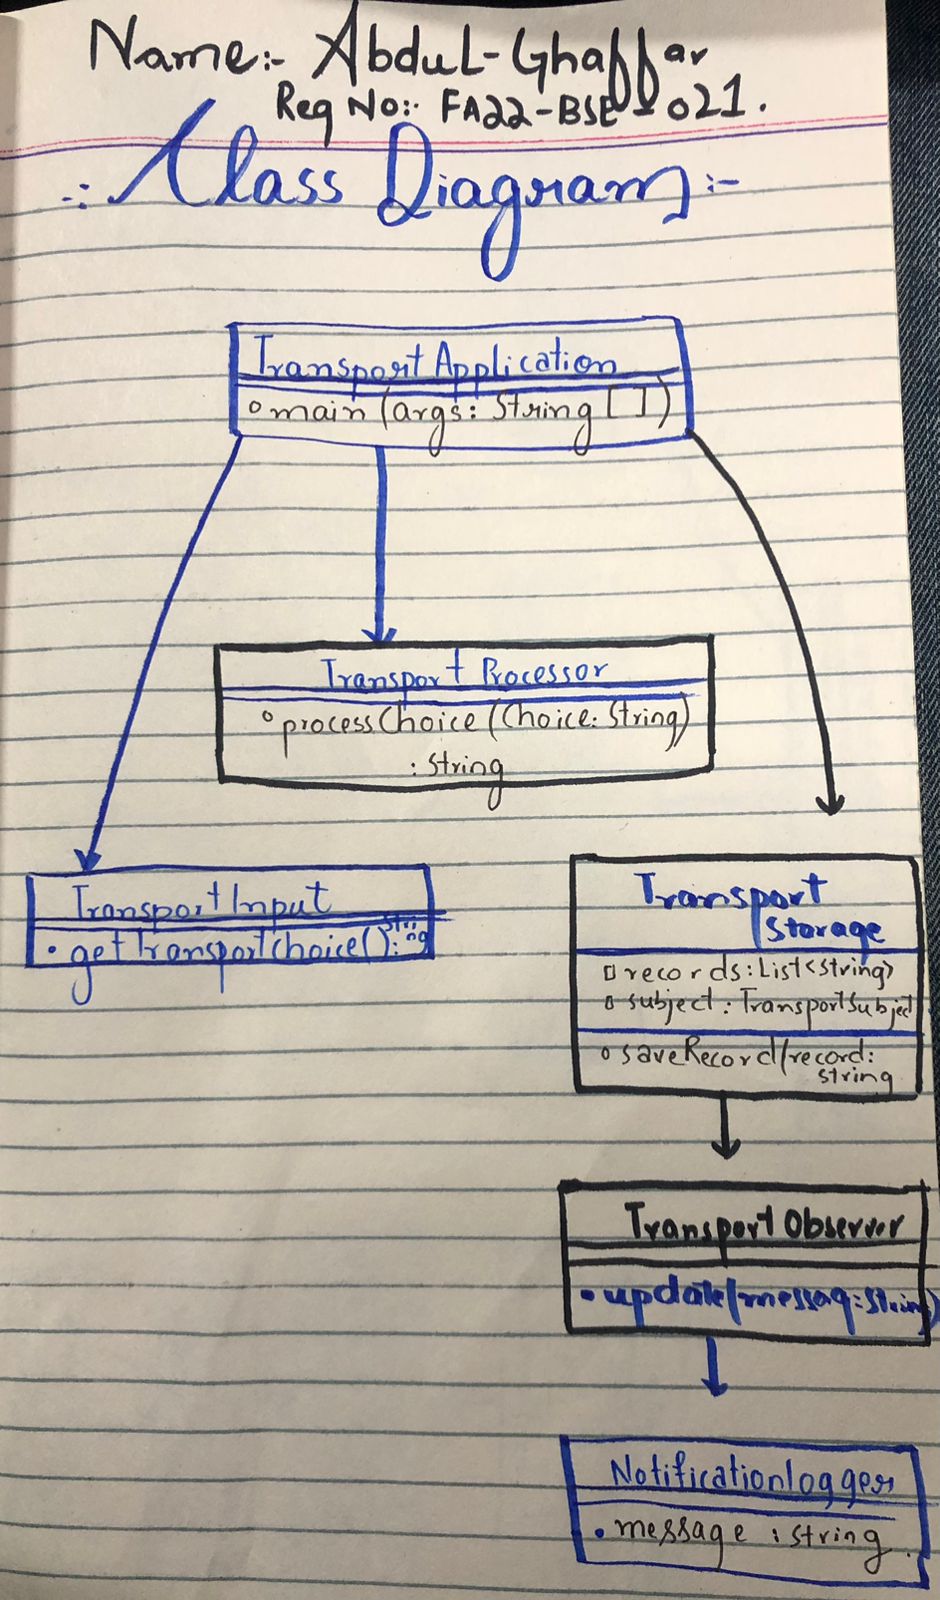 Name:- Abdul-Ghaffar
Reg No:- FA22-BSE-021.
.: Class Diagram :-
Transport Application
main (args: String [ ])
Transport Processor
processChoice (Choice: String)
: String
TransportInput
• getTransportchoice(): String
Transport
Storage
records: List<string>
subject: TransportSubject
saveRecord(record:
string
Transport Observer
• update(messag: String)
Notificationlogger
• message : string